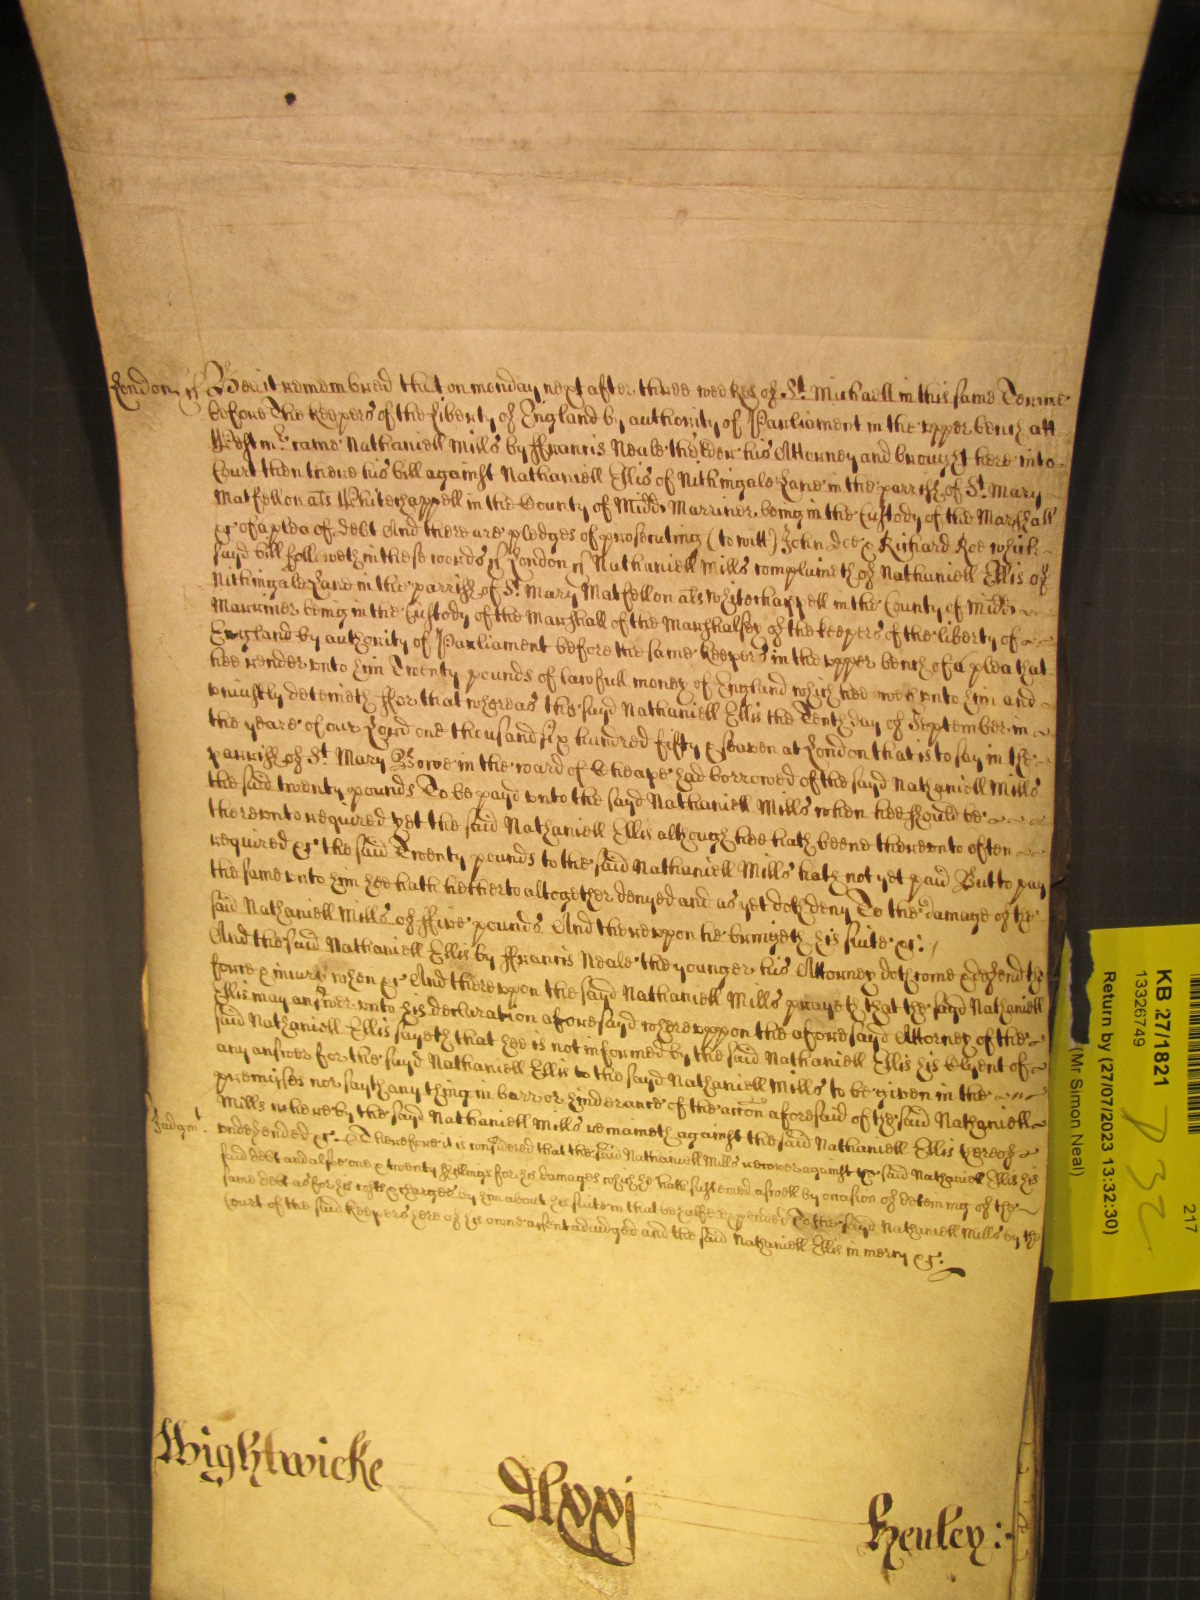 London ss Bee it remembred that on monday next after three weekes of St. Michaell in this same Terme
before The keepers of the liberty of England by authority of Parliament in the upper bench att
Westmr. came Nathaniell Mills by Ffrancis Neale the elder his Attorney and brought here into
Court then there his bill against Nathaniell Ellis of Nithingale Lane in the parrish of St. Mary
Matfellon als Whitechappell in the County of Midd Marriner being in the Custody of the Marshall
&c of a plea of debt And there are pledges of prosecuting (to witt) John Doe & Richard Roe which
sayd bill followeth in these words ss London ss Nathaniell Mills complaineth of Nathaniell Ellis of
Nithingale Lane in the parrish of St. Mary Matfellon als Whitechappell in the County of Midd
Marriner being in the Custody of the Marshall of the Marshalsey of the keepers of the liberty of
England by authority of Parliament before the same keepers in the upper bench of a plea that
hee render unto him Twenty pounds of lawfull money of England which hee owes unto him and
uniustly deteineth Ffor that whereas the sayd Nathaniell Ellis the Tenth day of September in
the yeare of our Lord one thousand six hundred fifty & seaven at London that is to say in the
parrish of St. Mary Bowe in the ward of Cheape had borrowed of the sayd Nathaniell Mills
the said twenty pounds To be payd unto the sayd Nathaniell Mills when hee should be
thereunto required yet the said Nathaniell Ellis although hee hath beene thereunto often
required &c the said Twenty pounds to the said Nathaniell Mills hath not yet paid But to pay
the same unto him hee hath hetherto altogether denyed and as yet doth deny To the damage of the
said Nathaniell Mills of Ffive pounds And thereupon he bringeth his suite &c.
And the said Nathaniell Ellis by Ffrancis Neale the younger his Attorney doth come & defend the
force & iniury when &c And thereupon the sayd Nathaniell Mills prayeth that the sayd Nathaniell
Ellis may answer unto his declaration aforesayd whereuppon the aforesayd Attorney of the
said Nathaniell Ellis sayeth that hee is not informed by the said Nathaniell Ellis his Clyent of
any answer for the sayd Nathaniell Ellis to the sayd Nathaniell Mills to be given in the
premisses nor sayth any thing in barr or hinderance of the accon aforesaid of the said Nathaniell
Mills whereby the sayd Nathaniell Mills remaineth against the said Nathaniell Ellis thereof
Judgmt. undefended &c. Therefore it is considered that the said Nathaniell Mills recover against the said Nathaniell Ellis his
said debt and also one & twenty shillings for his damages which he hath susteined aswell by occasion of deteining of the
same debt as for his costs & charges by him about his suite in that behalfe expended To the sayd Nathaniell Mills by the
Court of the said keepers here of his owne assent adiudged and the said Nathaniell Ellis in mercy &c.
Wightwicke
Henley:
217
KB 27/1821
13326749
Return by (27/07/2023 13:32:30)
(Mr Simon Neal)